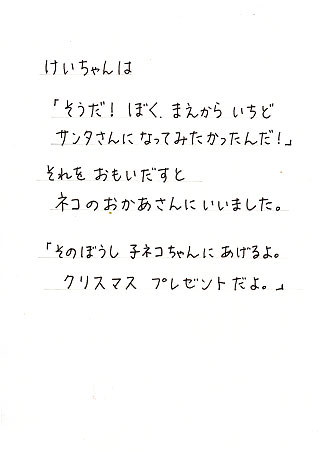 けいちゃんは
「そうだ！ ぼく、まえから いちど
サンタさんに なってみたかったんだ！」
それを おもいだすと
ネコのおかあさんにいいました。
「そのぼうし 子ネコちゃんに あげるよ。
クリスマス プレゼントだよ。」